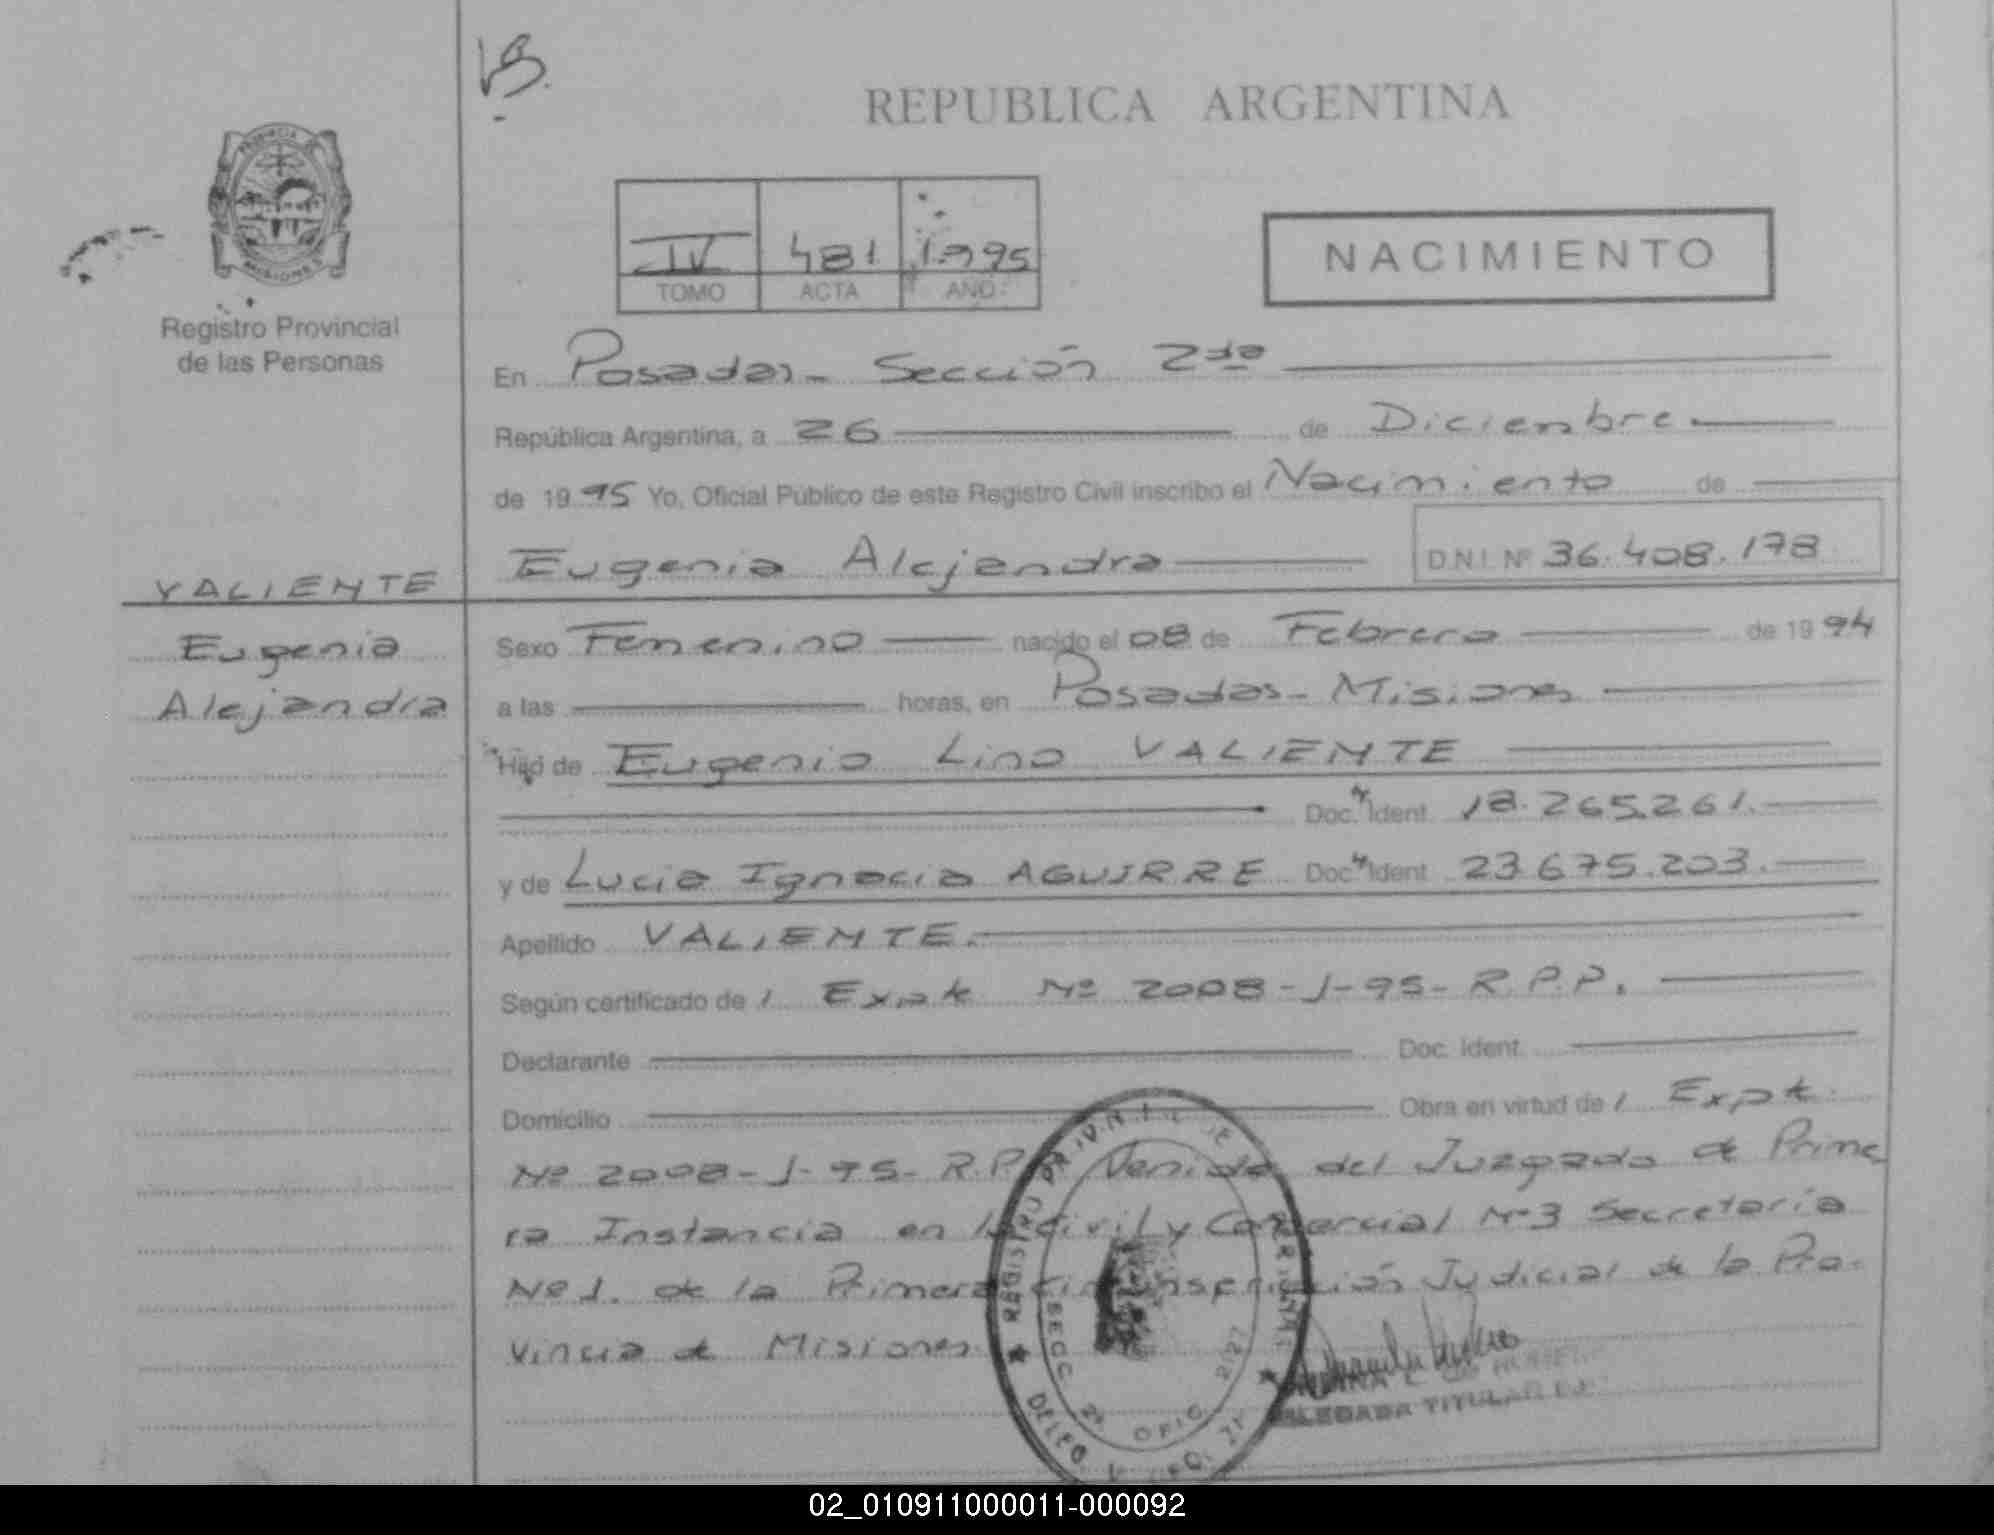 VB.
REPUBLICA ARGENTINA
PROVINCIA DE
MISIONES
Registro Provincial
de las Personas
IV 481 1.995
TOMO ACTA AÑO
NACIMIENTO
En Posadas- Sección 2da
República Argentina, a 26 de Diciembre
de 1995 Yo, Oficial Público de este Registro Civil inscribo el Nacimiento de
Eugenia Alejandra D.N.I. Nº 36.408.178
VALIENTE
Eugenia
Alejandra
Sexo Femenino nacido el 08 de Febrero de 1994
a las horas, en Posadas- Misiones
Hijo de Eugenio Lino VALIENTE
Doc. Ident. 18.265.261.
y de Lucia Ignacia AGUIRRE Doc. Ident. 23.675.203.
Apellido VALIENTE.
Según certificado de / Expte Nº 2008-J-95- R.P.P.
Declarante Doc. Ident.
Domicilio Obra en virtud de / Expte.
Nº 2008-J-95- R.P.P. Venido del Juzgado de Prime
ra Instancia en lo Civil y Comercial Nº 3 Secretaría
Nº 1. de la Primera Circunscripción Judicial de la Pro-
vincia de Misiones
★ REGISTRO PROVINCIAL DE
SECC 2ª OFIC 2127
DELEG
DELEGADA TITULAR
02_010911000011-000092